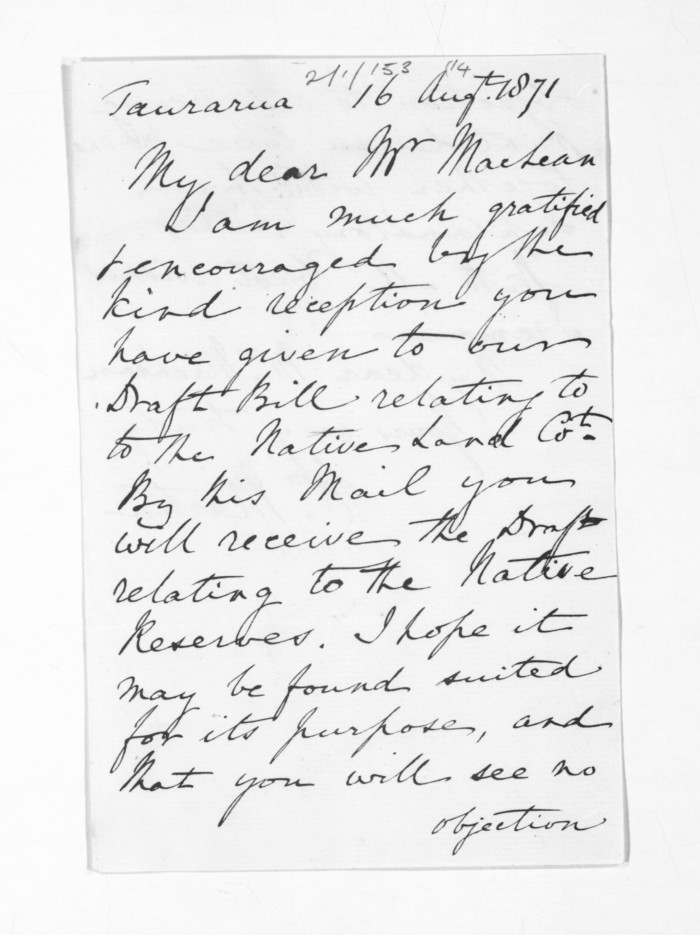 2/1/153 114
Taurarua 16 Augt. 1871
My dear Mr MacLean
I am much gratified
& encouraged by the
kind reception you
have given to our
Draft Bill relating to
to the Native Land Cot.
By this Mail you
will receive the Draft
relating to the Native
Reserves. I hope it
may be found suited
for its purpose, and
that you will see no
objection